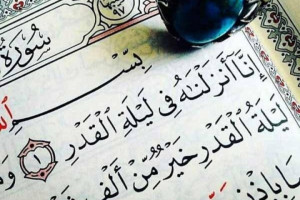 سُورَةُ
بِسْمِ
إِنَّا أَنزَلْنَٰهُ فِى لَيْلَةِ ٱلْقَدْرِ ١
لَيْلَةُ ٱلْقَدْرِ خَيْرٌ مِّنْ أَلْفِ
بِإِذْنِ